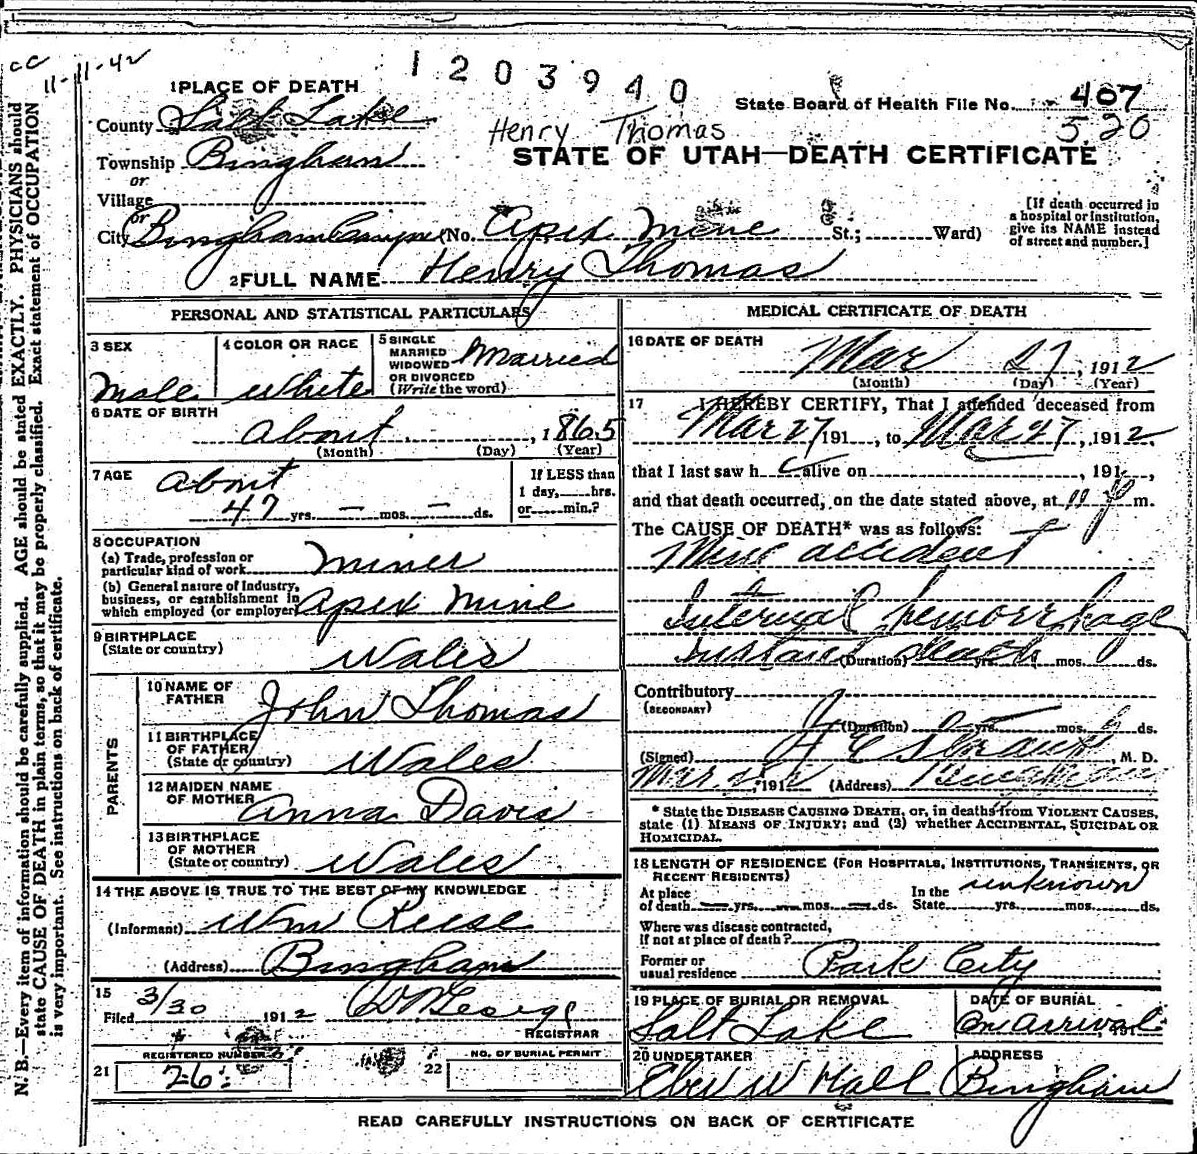 CC
11-11-42
1203940
1 PLACE OF DEATH
State Board of Health File No. 407
520
County Salt Lake
Henry Thomas
Township Bingham
STATE OF UTAH—DEATH CERTIFICATE
or
Village
or
City Bingham Canyon (No. Apex Mine St.; Ward)
[If death occurred in a hospital or institution, give its NAME instead of street and number.]
2 FULL NAME Henry Thomas
PERSONAL AND STATISTICAL PARTICULARS
3 SEX Male
4 COLOR OR RACE White
5 SINGLE MARRIED WIDOWED OR DIVORCED (Write the word) Married
6 DATE OF BIRTH
about, 1865
(Month) (Day) (Year)
7 AGE about
47 yrs. — mos. — ds.
If LESS than 1 day, hrs. or min.?
8 OCCUPATION
(a) Trade, profession or particular kind of work Miner
(b) General nature of Industry, business, or establishment in which employed (or employer) Apex Mine
9 BIRTHPLACE
(State or country) Wales
PARENTS
10 NAME OF FATHER John Thomas
11 BIRTHPLACE OF FATHER (State or country) Wales
12 MAIDEN NAME OF MOTHER Anna Davis
13 BIRTHPLACE OF MOTHER (State or country) Wales
14 THE ABOVE IS TRUE TO THE BEST OF MY KNOWLEDGE
(Informant) Wm Reese
(Address) Bingham
15
Filed 3/30 1912
REGISTRAR
REGISTERED NUMBER
21 26
NO. OF BURIAL PERMIT
22
MEDICAL CERTIFICATE OF DEATH
16 DATE OF DEATH
Mar 27, 1912
(Month) (Day) (Year)
17 I HEREBY CERTIFY, That I attended deceased from
Mar 27 191, to Mar 27, 1912.
that I last saw h alive on , 191 ,
and that death occurred, on the date stated above, at 11 m.
The CAUSE OF DEATH* was as follows:
Mine accident
Internal hemorrhage
Instant death (Duration) yrs. mos. ds.
Contributory
(SECONDARY)
(Duration) yrs. mos. ds.
(Signed) M. D.
Mar 1912 (Address) Bingham
* State the DISEASE CAUSING DEATH, or, in deaths from VIOLENT CAUSES, state (1) MEANS OF INJURY; and (2) whether ACCIDENTAL, SUICIDAL OR HOMICIDAL.
18 LENGTH OF RESIDENCE (FOR HOSPITALS, INSTITUTIONS, TRANSIENTS, OR RECENT RESIDENTS)
At place of death yrs. mos. ds. In the State unknown yrs. mos. ds.
Where was disease contracted, if not at place of death?
Former or usual residence Park City
19 PLACE OF BURIAL OR REMOVAL Salt Lake
DATE OF BURIAL On arrival 191
20 UNDERTAKER Eber W Hall
ADDRESS Bingham
READ CAREFULLY INSTRUCTIONS ON BACK OF CERTIFICATE
N. B.—Every item of information should be carefully supplied. AGE should be stated EXACTLY. PHYSICIANS should
state CAUSE OF DEATH in plain terms, so that it may be properly classified. Exact statement of OCCUPATION
is very important. See instructions on back of certificate.